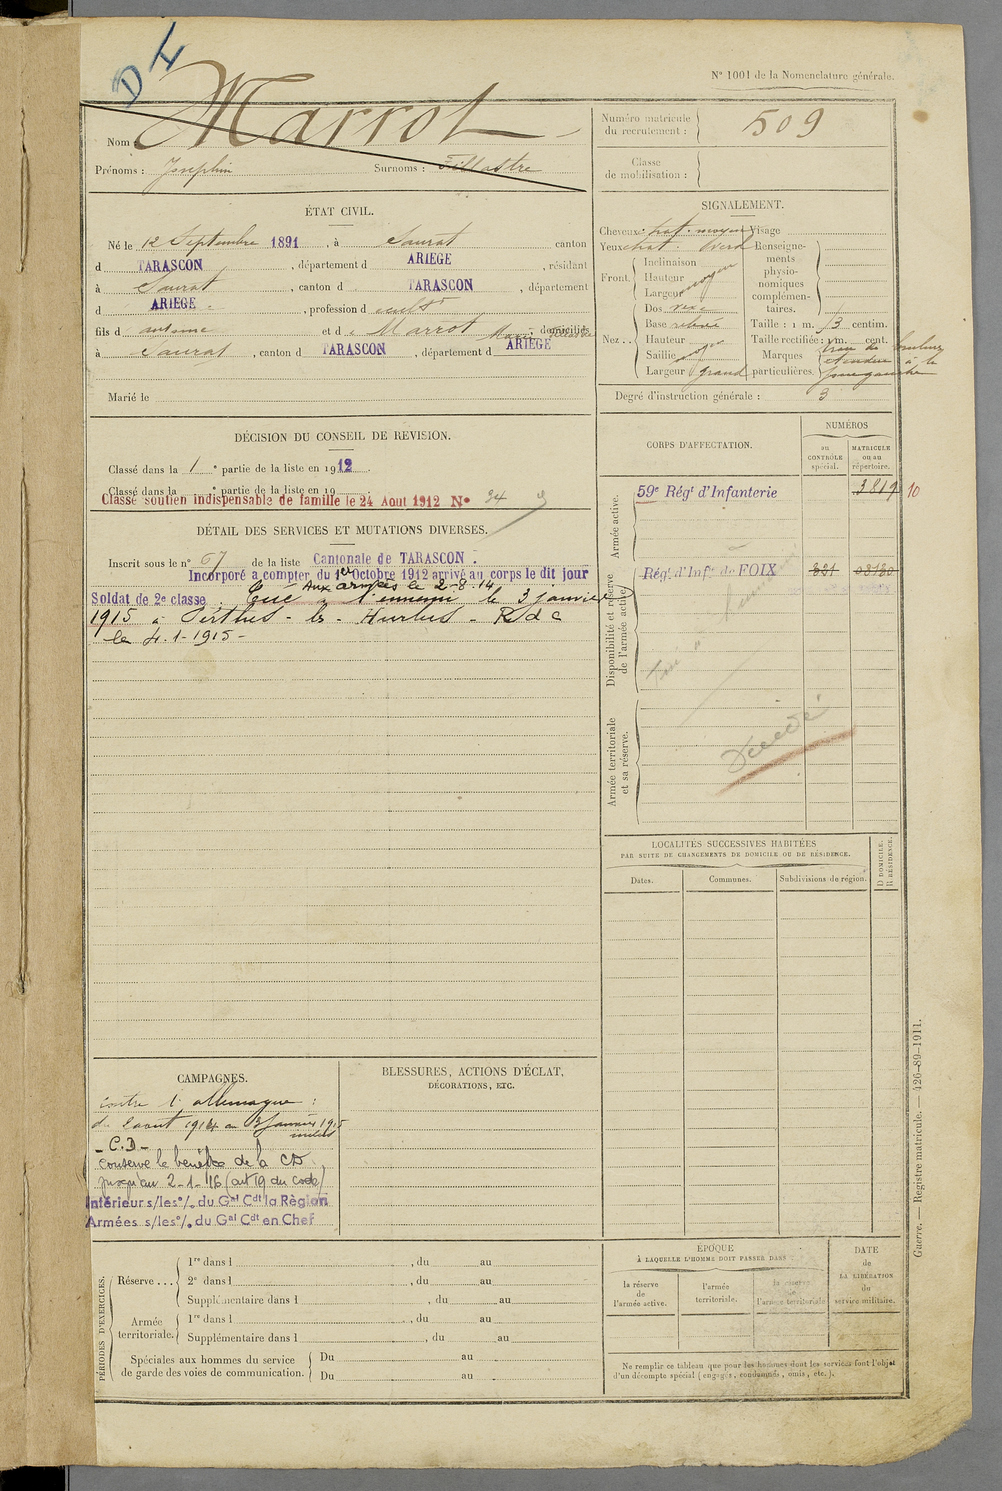 D H
N° 1001 de la Nomenclature générale.
Nom : Marrot
Prénoms : Josephin Surnoms : Fillastre
Numéro matricule du recrutement : 509
Classe de mobilisation :
ÉTAT CIVIL.
Né le 12 Septembre 1891, à Saurat canton
d TARASCON, département d ARIEGE, résidant
à Saurat, canton d TARASCON, département
d ARIEGE, profession d cultr
fils d antoine et d Marrot Marie, domiciliés
à Saurat, canton d TARASCON, département d ARIEGE
Marié le
SIGNALEMENT.
Cheveux chat. moyen Visage
Yeux chat. verd Renseignements physionomiques complémentaires.
Front. Inclinaison
Hauteur moyen
Largeur
Nez.. Dos vexe
Base relevé
Hauteur
Saillie moyen
Largeur grand
Taille : 1 m. 3 centim.
Taille rectifiée : 1 m. cent.
Marques particulières. à la
joue gauche
Degré d'instruction générale : 3
DÉCISION DU CONSEIL DE RÉVISION.
Classé dans la 1e partie de la liste en 1912.
Classé dans la e partie de la liste en 19
Classé soutien indispensable de famille le 24 Aout 1912 N° 34
CORPS D'AFFECTATION.
NUMÉROS
au CONTRÔLE spécial.
MATRICULE ou au répertoire.
Armée active.
59e Régt d'Infanterie 3819 10
Disponibilité et réserve de l'armée active.
Régt d'Inf.ie de FOIX 331 03130
Tué à l'ennemi
Armée territoriale et sa réserve.
Décédé
DÉTAIL DES SERVICES ET MUTATIONS DIVERSES.
Inscrit sous le n° 67 de la liste Cantonale de TARASCON.
Incorporé a compter du 1er Octobre 1912 arrivé au corps le dit jour
Aux armées le 2-8-14
Soldat de 2e classe. Tué à l'ennemi le 3 janvier
1915 à Perthes-les-Hurlus - R d c
le 4-1-1915-
LOCALITÉS SUCCESSIVES HABITÉES
PAR SUITE DE CHANGEMENTS DE DOMICILE OU DE RÉSIDENCE.
Dates. Communes. Subdivisions de région. D DOMICILE. R RÉSIDENCE.
CAMPAGNES.
contre l'allemagne :
du 2 aout 1914 au 3 janvier 1915
inclus
- C.D -
conserve le bénéfice de la CD
jusqu'au 2-1-16 (art 19 du code)
Intérieur s/les °/. du Gal Cdt la Règion
Armées s/les °/. du Gal Cdt en Chef
BLESSURES, ACTIONS D'ÉCLAT,
DÉCORATIONS, ETC.
PÉRIODES D'EXERCICES.
Réserve... 1re dans l , du au
2e dans l , du au
Supplémentaire dans l , du au
Armée territoriale. 1re dans l , du au
Supplémentaire dans l , du au
Spéciales aux hommes du service de garde des voies de communication. Du au
Du au
ÉPOQUE
À LAQUELLE L'HOMME DOIT PASSER DANS
la réserve de l'armée active.
l'armée territoriale.
la réserve de l'armée territoriale
DATE de LA LIBÉRATION du service militaire.
Ne remplir ce tableau que pour les hommes dont les services font l'objet
d'un décompte spécial (engagés, condamnés, omis, etc.).
Guerre. — Registre matricule. — 426-89-1911.